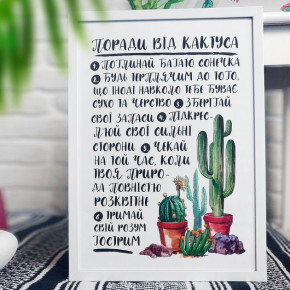 ПОРАДИ ВІД КАКТУСА
1 ПОГЛИНАЙ БАГАТО СОНЕЧКА
2 БУДЬ ТЕРПЛЯЧИМ ДО ТОГО,
ЩО ІНОДІ НАВКОЛО ТЕБЕ БУВАЄ
СУХО ТА ЧЕРСТВО 3 ЗБЕРІГАЙ
СВОЇ ЗАПАСИ 4 ПІДКРЕС-
ЛЮЙ СВОЇ СИЛЬНІ
СТОРОНИ 5 ЧЕКАЙ
НА ТОЙ ЧАС, КОЛИ
ТВОЯ ПРИРО-
ДА ПОВНІСТЮ
РОЗКВІТНЕ
6 ТРИМАЙ
СВІЙ РОЗУМ
ГОСТРИМ